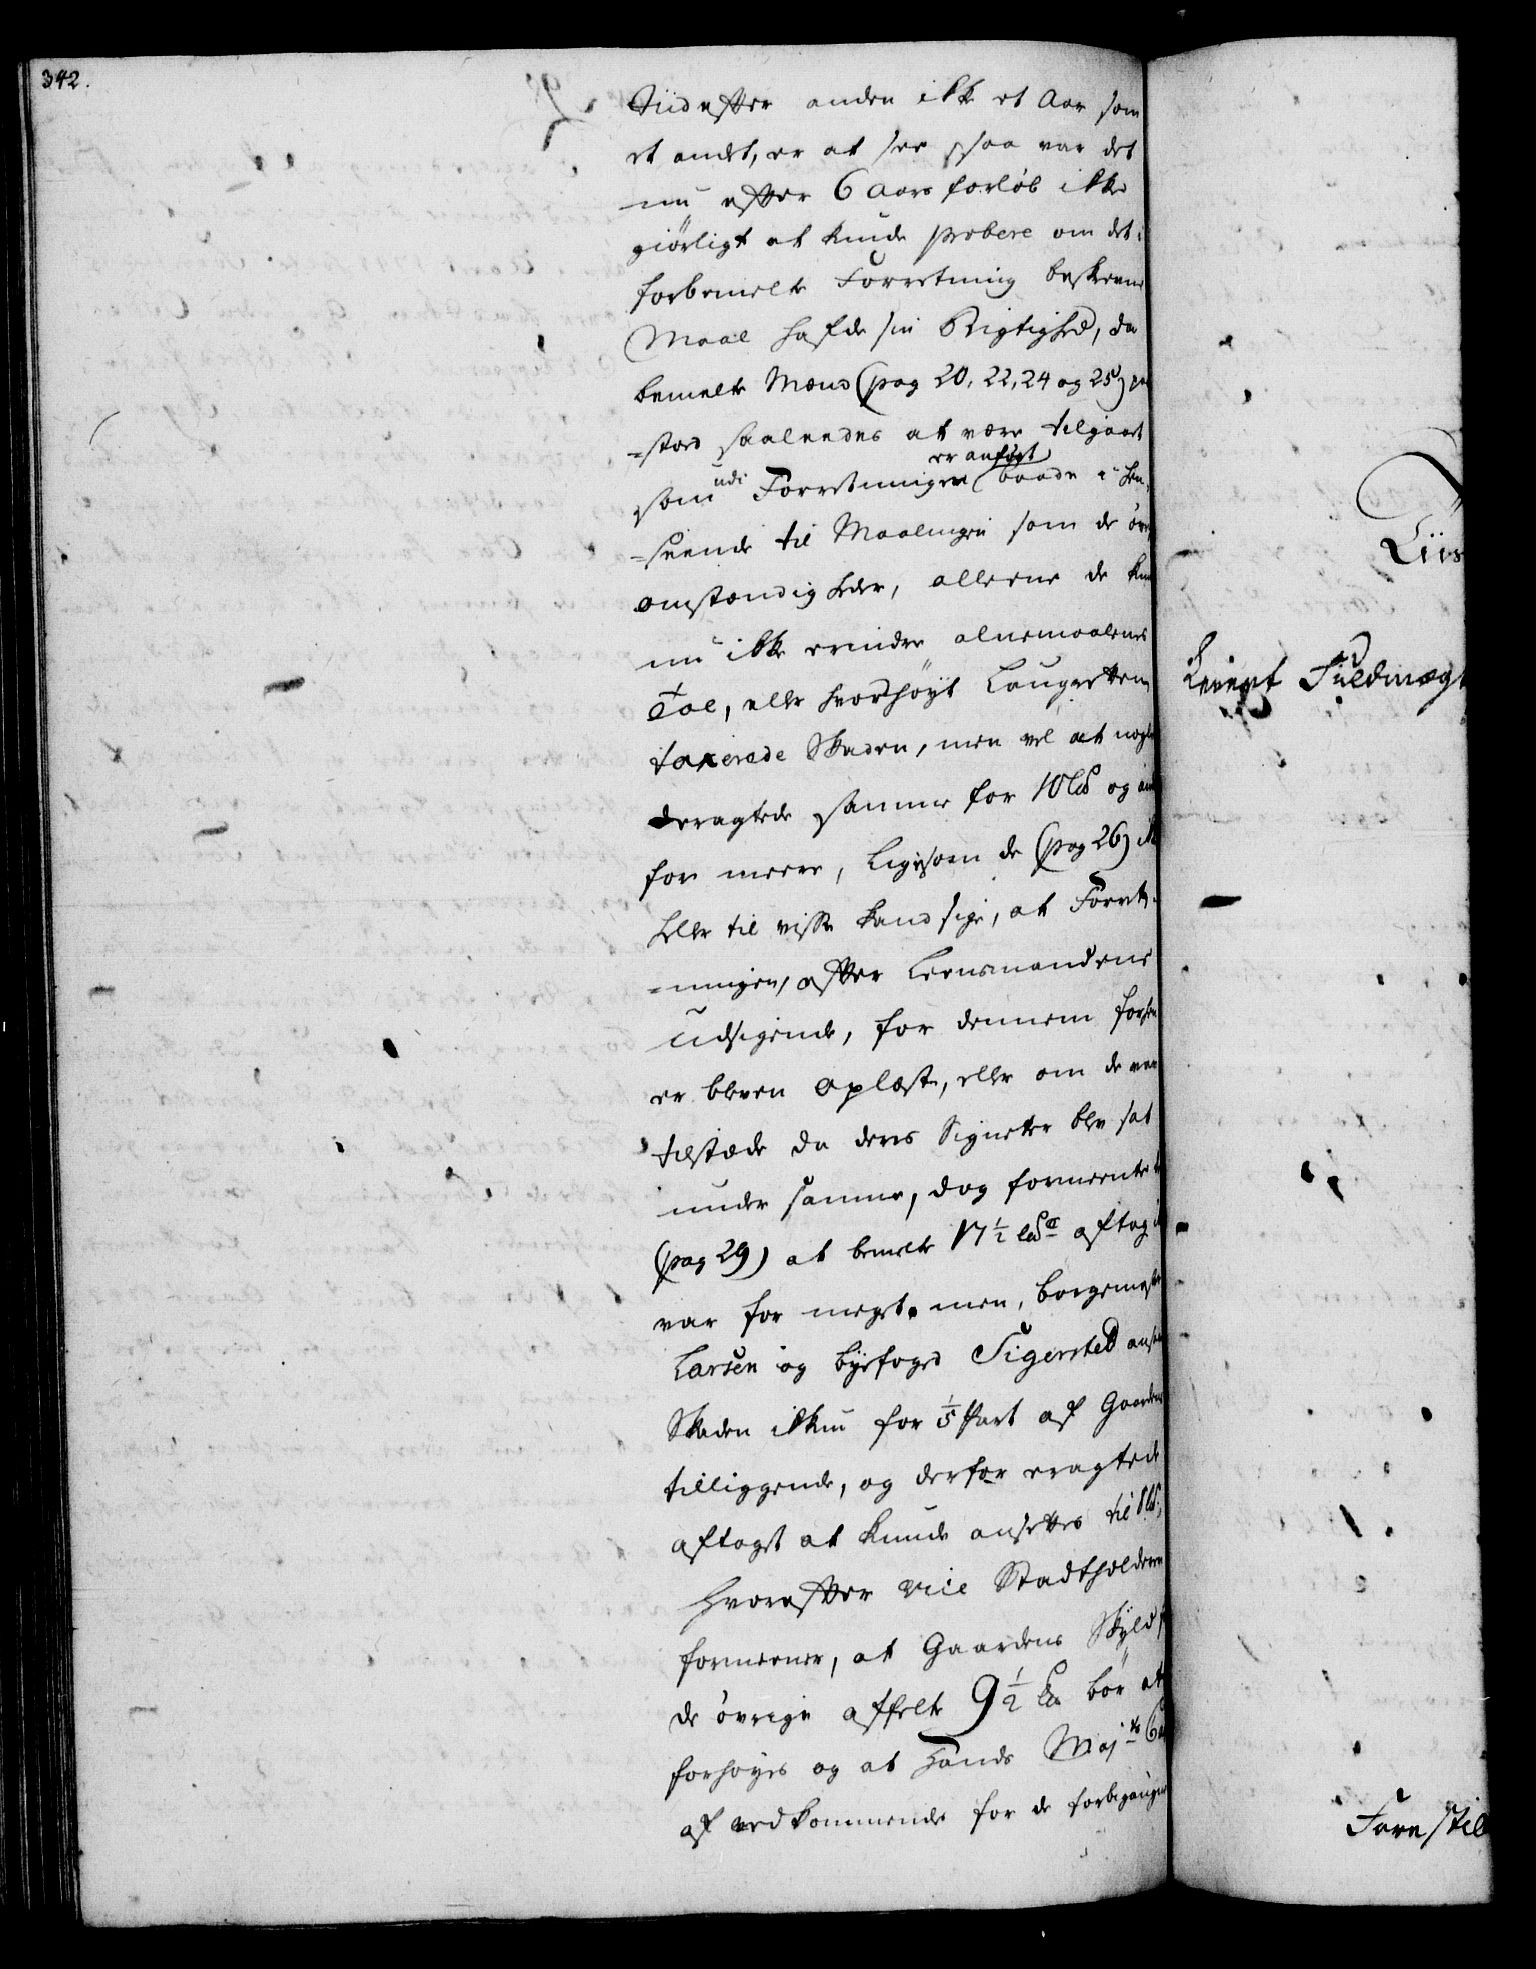 342.
Tiid efter anden ikke et Aar som
et andet, er at see, saa var det
nu efter 6 Aars forløb ikke
giörligt at kunde probere om det i
forbemelte Forretning beskrevne
Maal hafde sin Rigtighed, da
bemelte Mænd (pag 20, 22, 24 og 25)
=stod saaleedes at være tilgaaet
som udi Forretningen er anført baade i hen-
=seende til Maalingen som de övr
omstændigheder, alleene de kun
nu ikke erindre alnemaalenes
Tal, eller hvor høyt Laugretten
taxerede Skaden, men vel at nogle
eragtede samme for 10 Lb og an
for meere, ligesom de (pag 26) ik
heller til visse kand sige, at Forret-
=ningen, efter Leensmandens
Udsigende, for dennem
er bleven oplæst, eller om de var
tilstæde da deres Signetter blev sat
under samme, dog formeente
(pag 29) at bemelte 17½ aftag
var for meget. men, borgemest
Larsen og byefoged Sigersted ans
Skaden ikkun for 1/5 Part af Gaardens
tilliggende, og derfor eragtede
aftaget at kunde ansættes til
Hvorefter Vice Stadtholderen
formeener, at Gaardens Skyld
de övrige affelte 9½ Lb bör at
forhøyes og at Hands Maj
af vedkommende for de forbigangne
Liis
Fuldmægt
Forestil